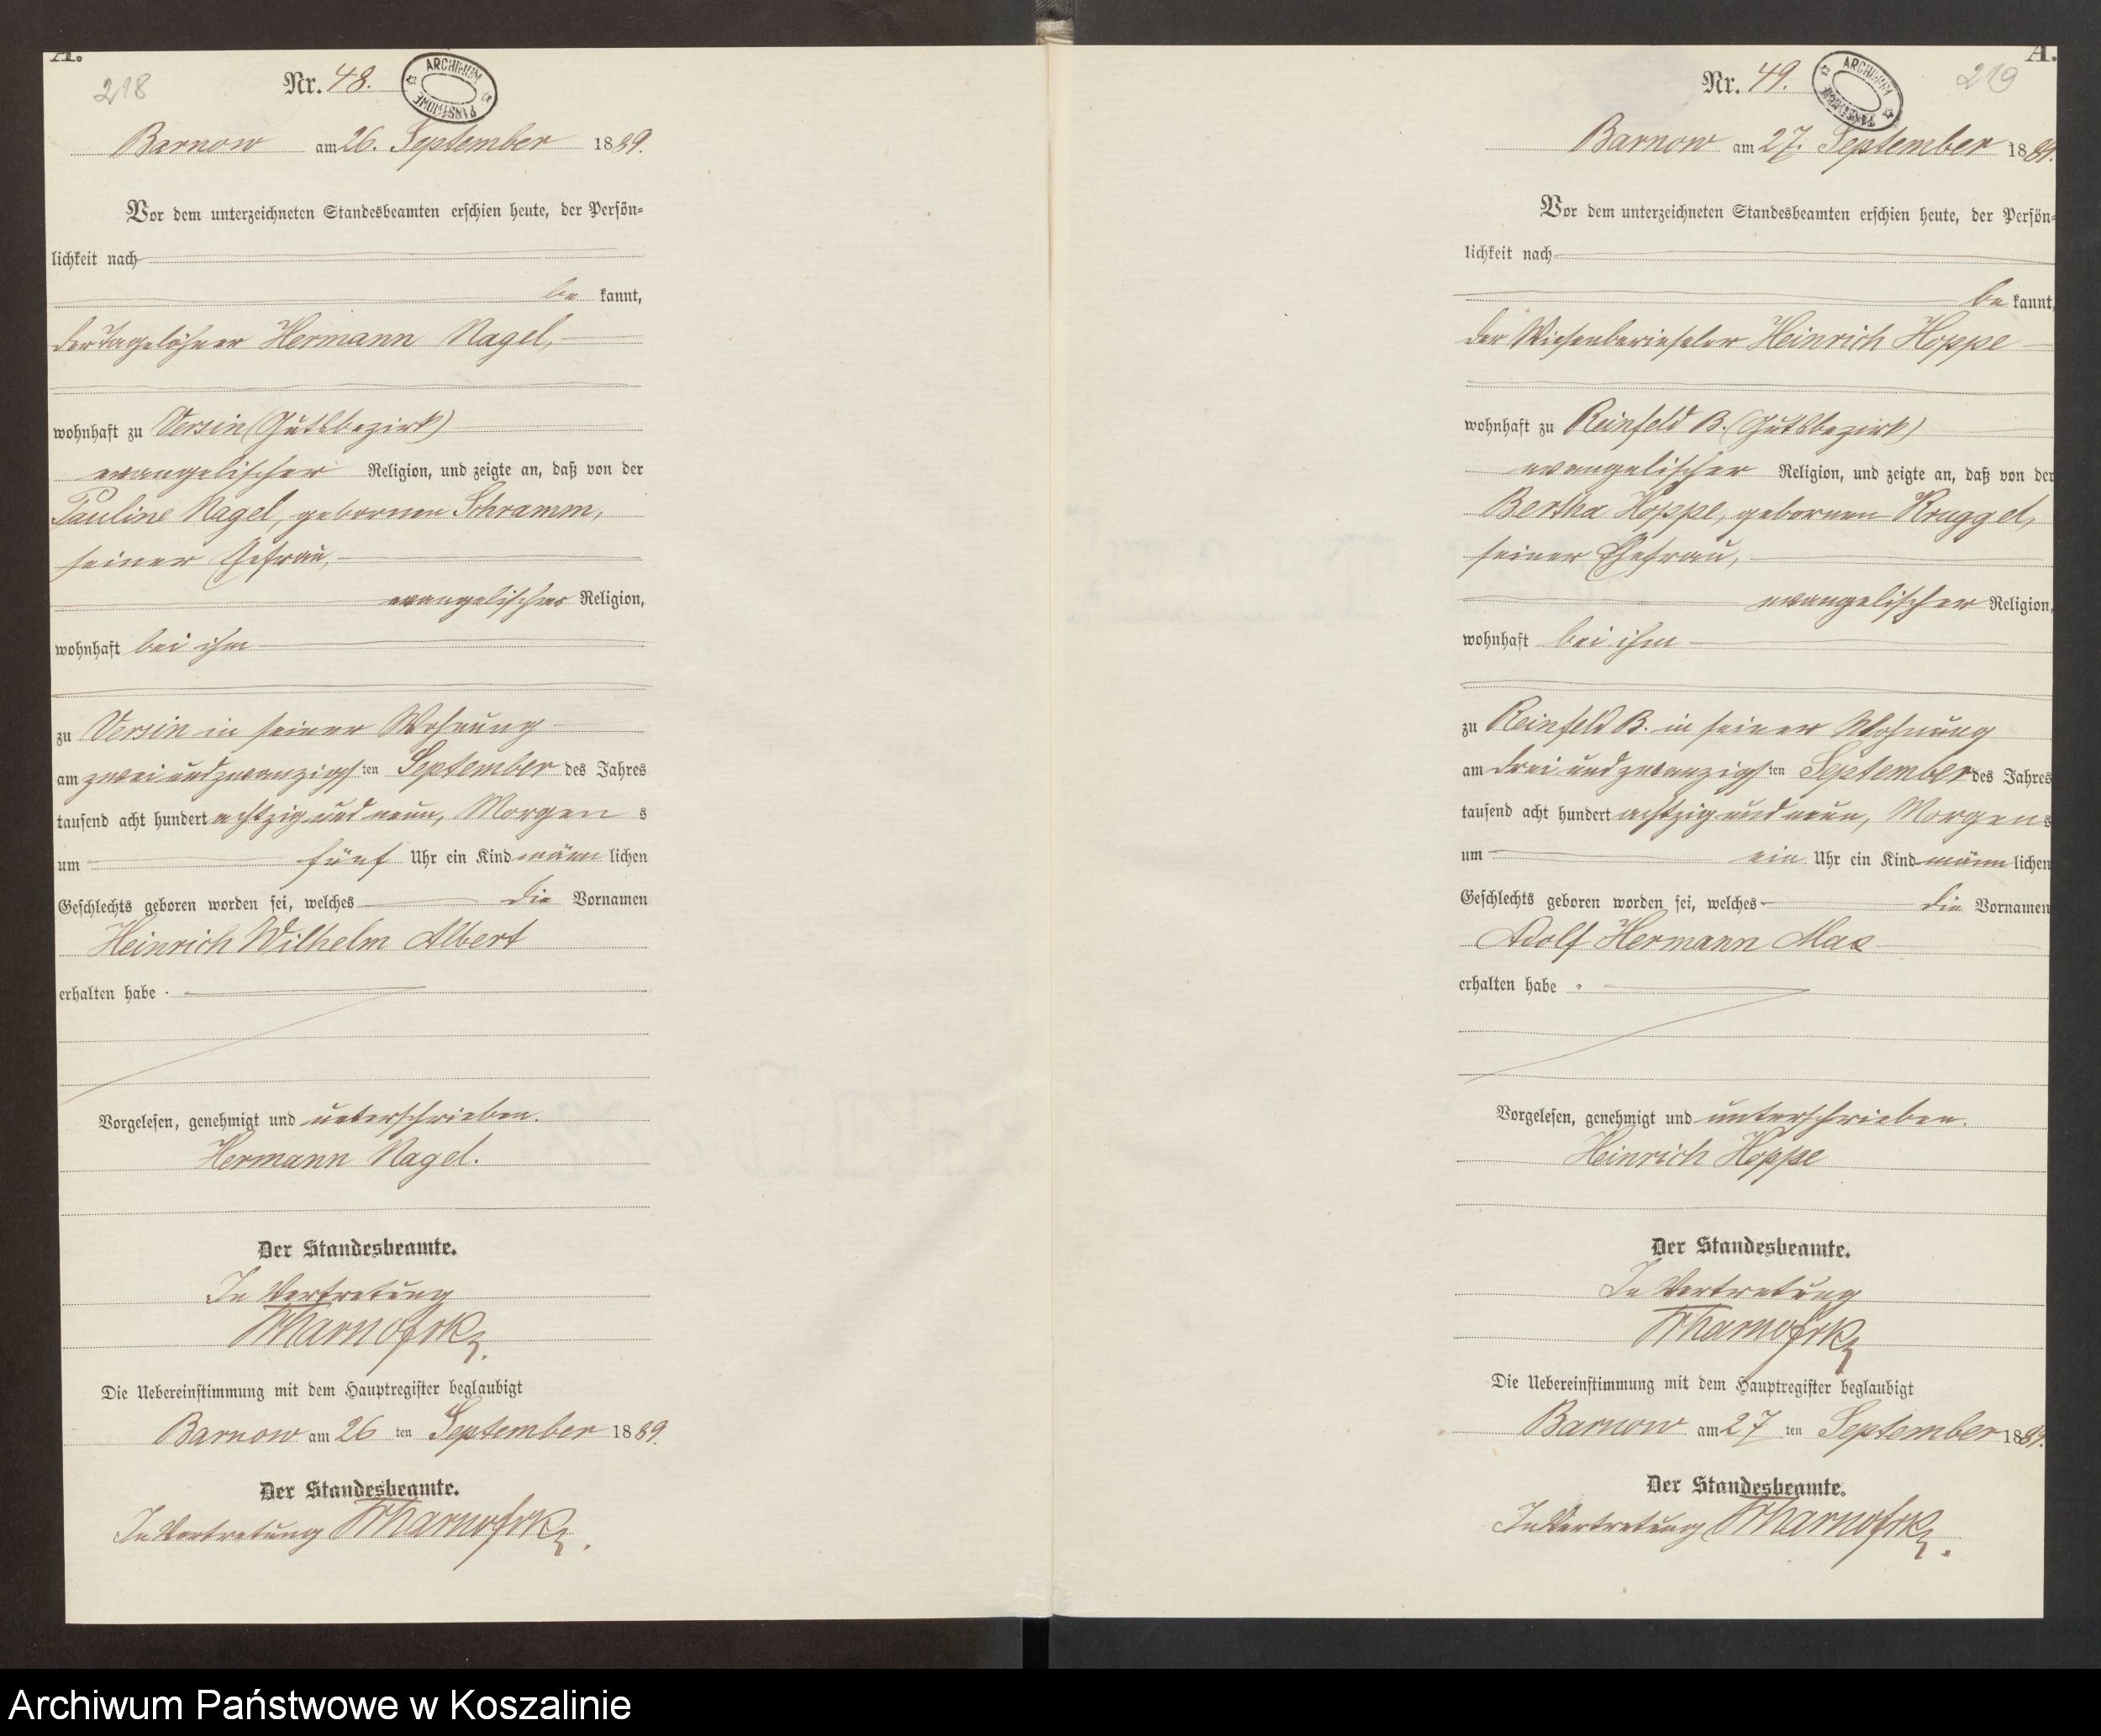 A.
218
Nr. 48.
ARCHIWUM PAŃSTWOWE
Barnow am 26. September 1889.
Vor dem unterzeichneten Standesbeamten erschien heute, der Persön=
lichkeit nach
be kannt,
der Tagelöhner Hermann Nagel,
wohnhaft zu Versin (Gutsbezirk)
evangelischer Religion, und zeigte an, daß von der
Pauline Nagel, gebornen Schramm,
seiner Ehefrau,
evangelischer Religion,
wohnhaft bei ihm
zu Versin in seiner Wohnung
am zwei und zwanzigsten September des Jahres
tausend acht hundert achtzig und neun, Morgens
um fünf Uhr ein Kind männlichen
Geschlechts geboren worden sei, welches die Vornamen
Heinrich Wilhelm Albert
erhalten habe.
Vorgelesen, genehmigt und unterschrieben.
Hermann Nagel.
Der Standesbeamte.
In Vertretung
Die Uebereinstimmung mit dem Hauptregister beglaubigt
Barnow am 26 ten September 1889.
Der Standesbeamte.
In Vertretung
A.
219
Nr. 49.
ARCHIWUM PAŃSTWOWE
Barnow am 27. September 1889.
Vor dem unterzeichneten Standesbeamten erschien heute, der Persön=
lichkeit nach
be kannt,
der Wiesenberieseler Heinrich Hoppe
wohnhaft zu Reinfeld B. (Gutsbezirk)
evangelischer Religion, und zeigte an, daß von der
Bertha Hoppe, gebornen Kruggel,
seiner Ehefrau,
evangelischer Religion,
wohnhaft bei ihm
zu Reinfeld B. in seiner Wohnung
am drei und zwanzigsten September des Jahres
tausend acht hundert achtzig und neun, Morgens
um ein Uhr ein Kind männlichen
Geschlechts geboren worden sei, welches die Vornamen
Adolf Hermann Max
erhalten habe.
Vorgelesen, genehmigt und unterschrieben.
Heinrich Hoppe
Der Standesbeamte.
In Vertretung
Die Uebereinstimmung mit dem Hauptregister beglaubigt
Barnow am 27 ten September 1889.
Der Standesbeamte.
In Vertretung
Archiwum Państwowe w Koszalinie